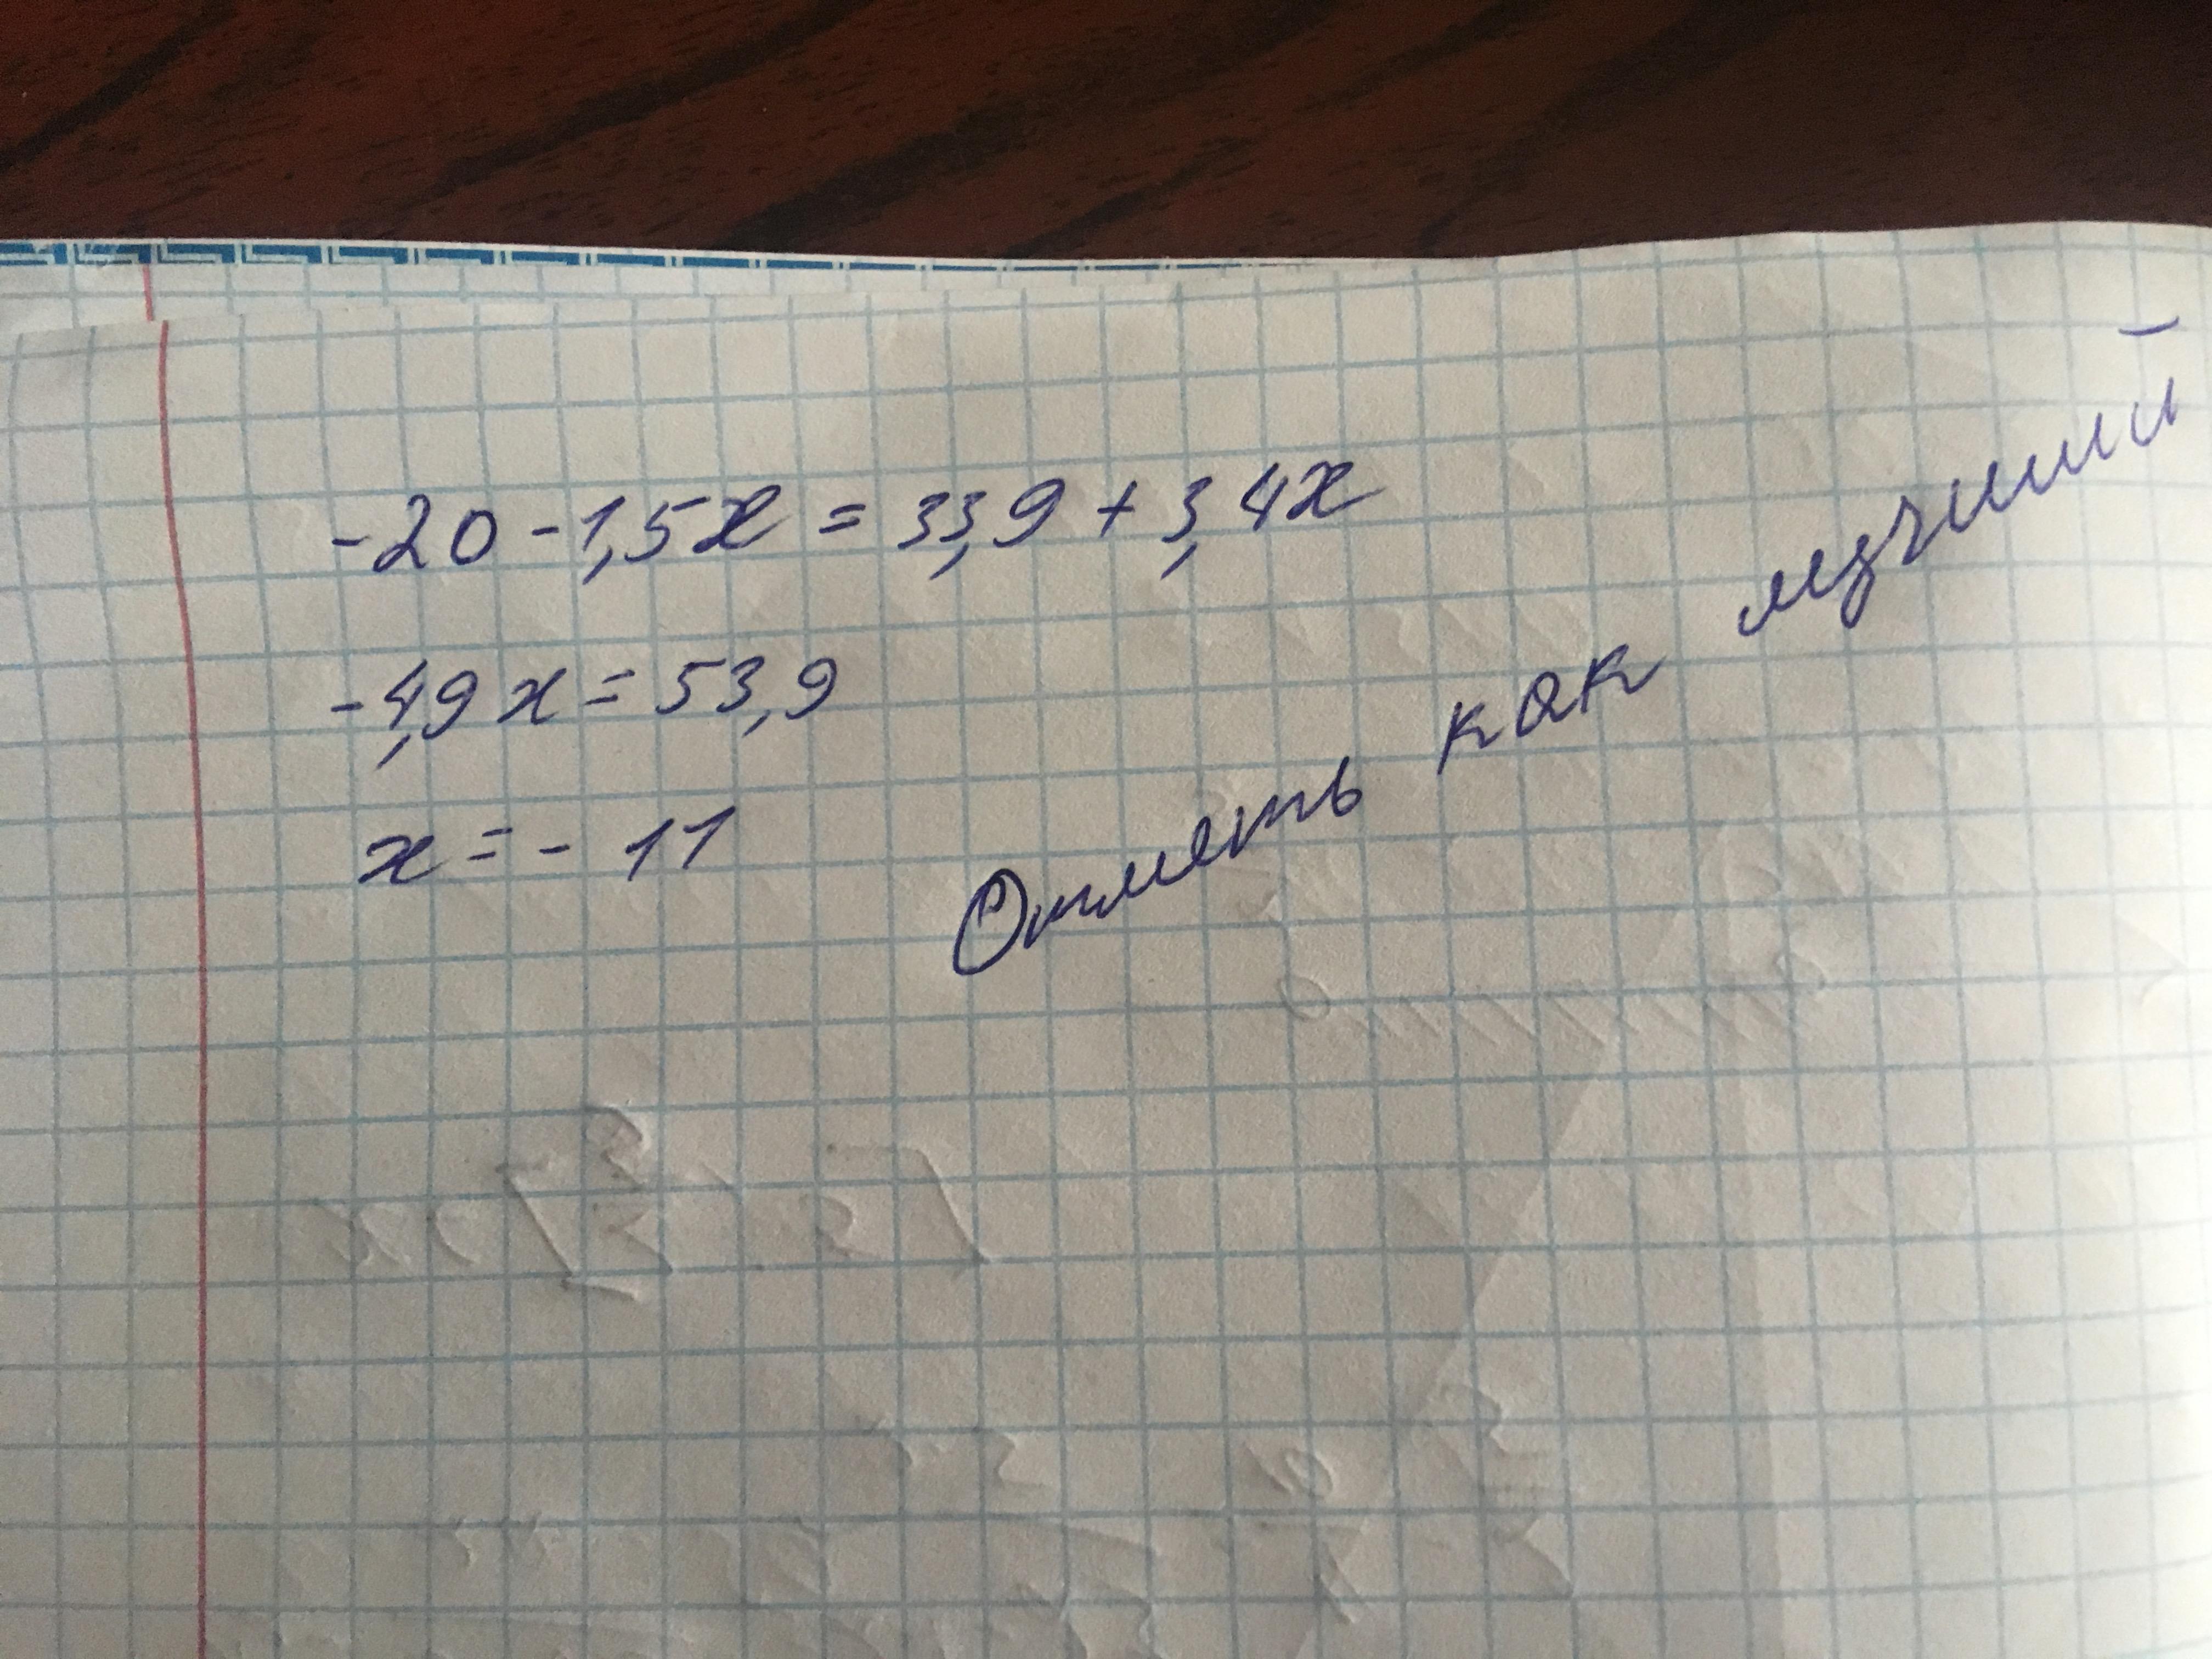 -20 - 1,5x = 33,9 + 3,4x
-4,9x = 53,9
x = - 11
Отметь как лучший